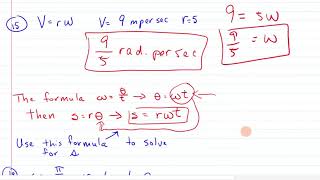 15 V = rω V = 9 m per sec r = 5
9/5 rad. per sec
9 = 5ω
9/5 = ω
The formula ω = θ/t → θ = ωt
then s = rθ → s = rωt
Use this formula to solve
for s